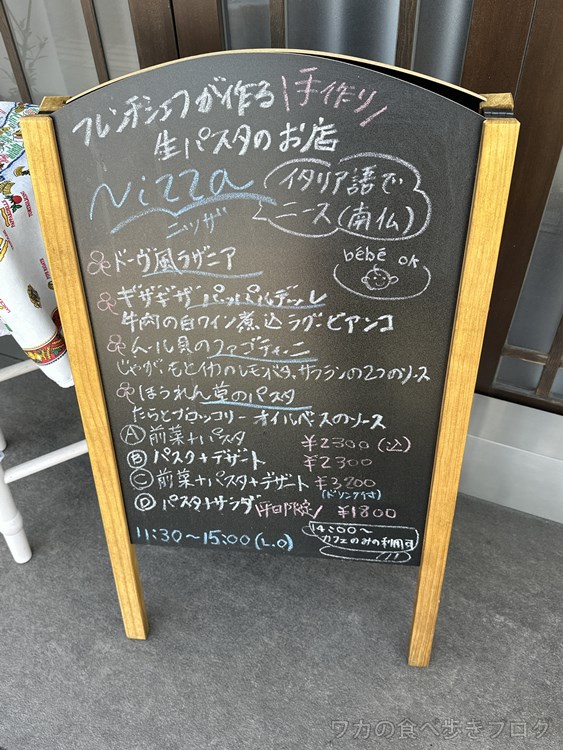 フレンチシェフが作る \手作り/
生パスタのお店
Nizza
ニッザ
イタリア語で
ニース(南仏)
bébé OK
ドーヴ風ラザニア
ギザギザパッパルデッレ
牛肉の白ワイン煮込ラグービアンコ
ムール貝のファゴティーニ
じゃがいもとイカのレモンバタ、サフランの2つのソース
ほうれん草のパスタ
たらとブロッコリー オイルベースのソース
Ⓐ 前菜+パスタ ¥2300(込)
Ⓑ パスタ+デザート ¥2300
Ⓒ 前菜+パスタ+デザート ¥3,200
(ドリンク付)
Ⓓ パスタ+サラダ \平日限定/ ¥1800
11:30〜15:00(L.O)
14:00〜
カフェのみの利用可
ワカの食べ歩きブログ